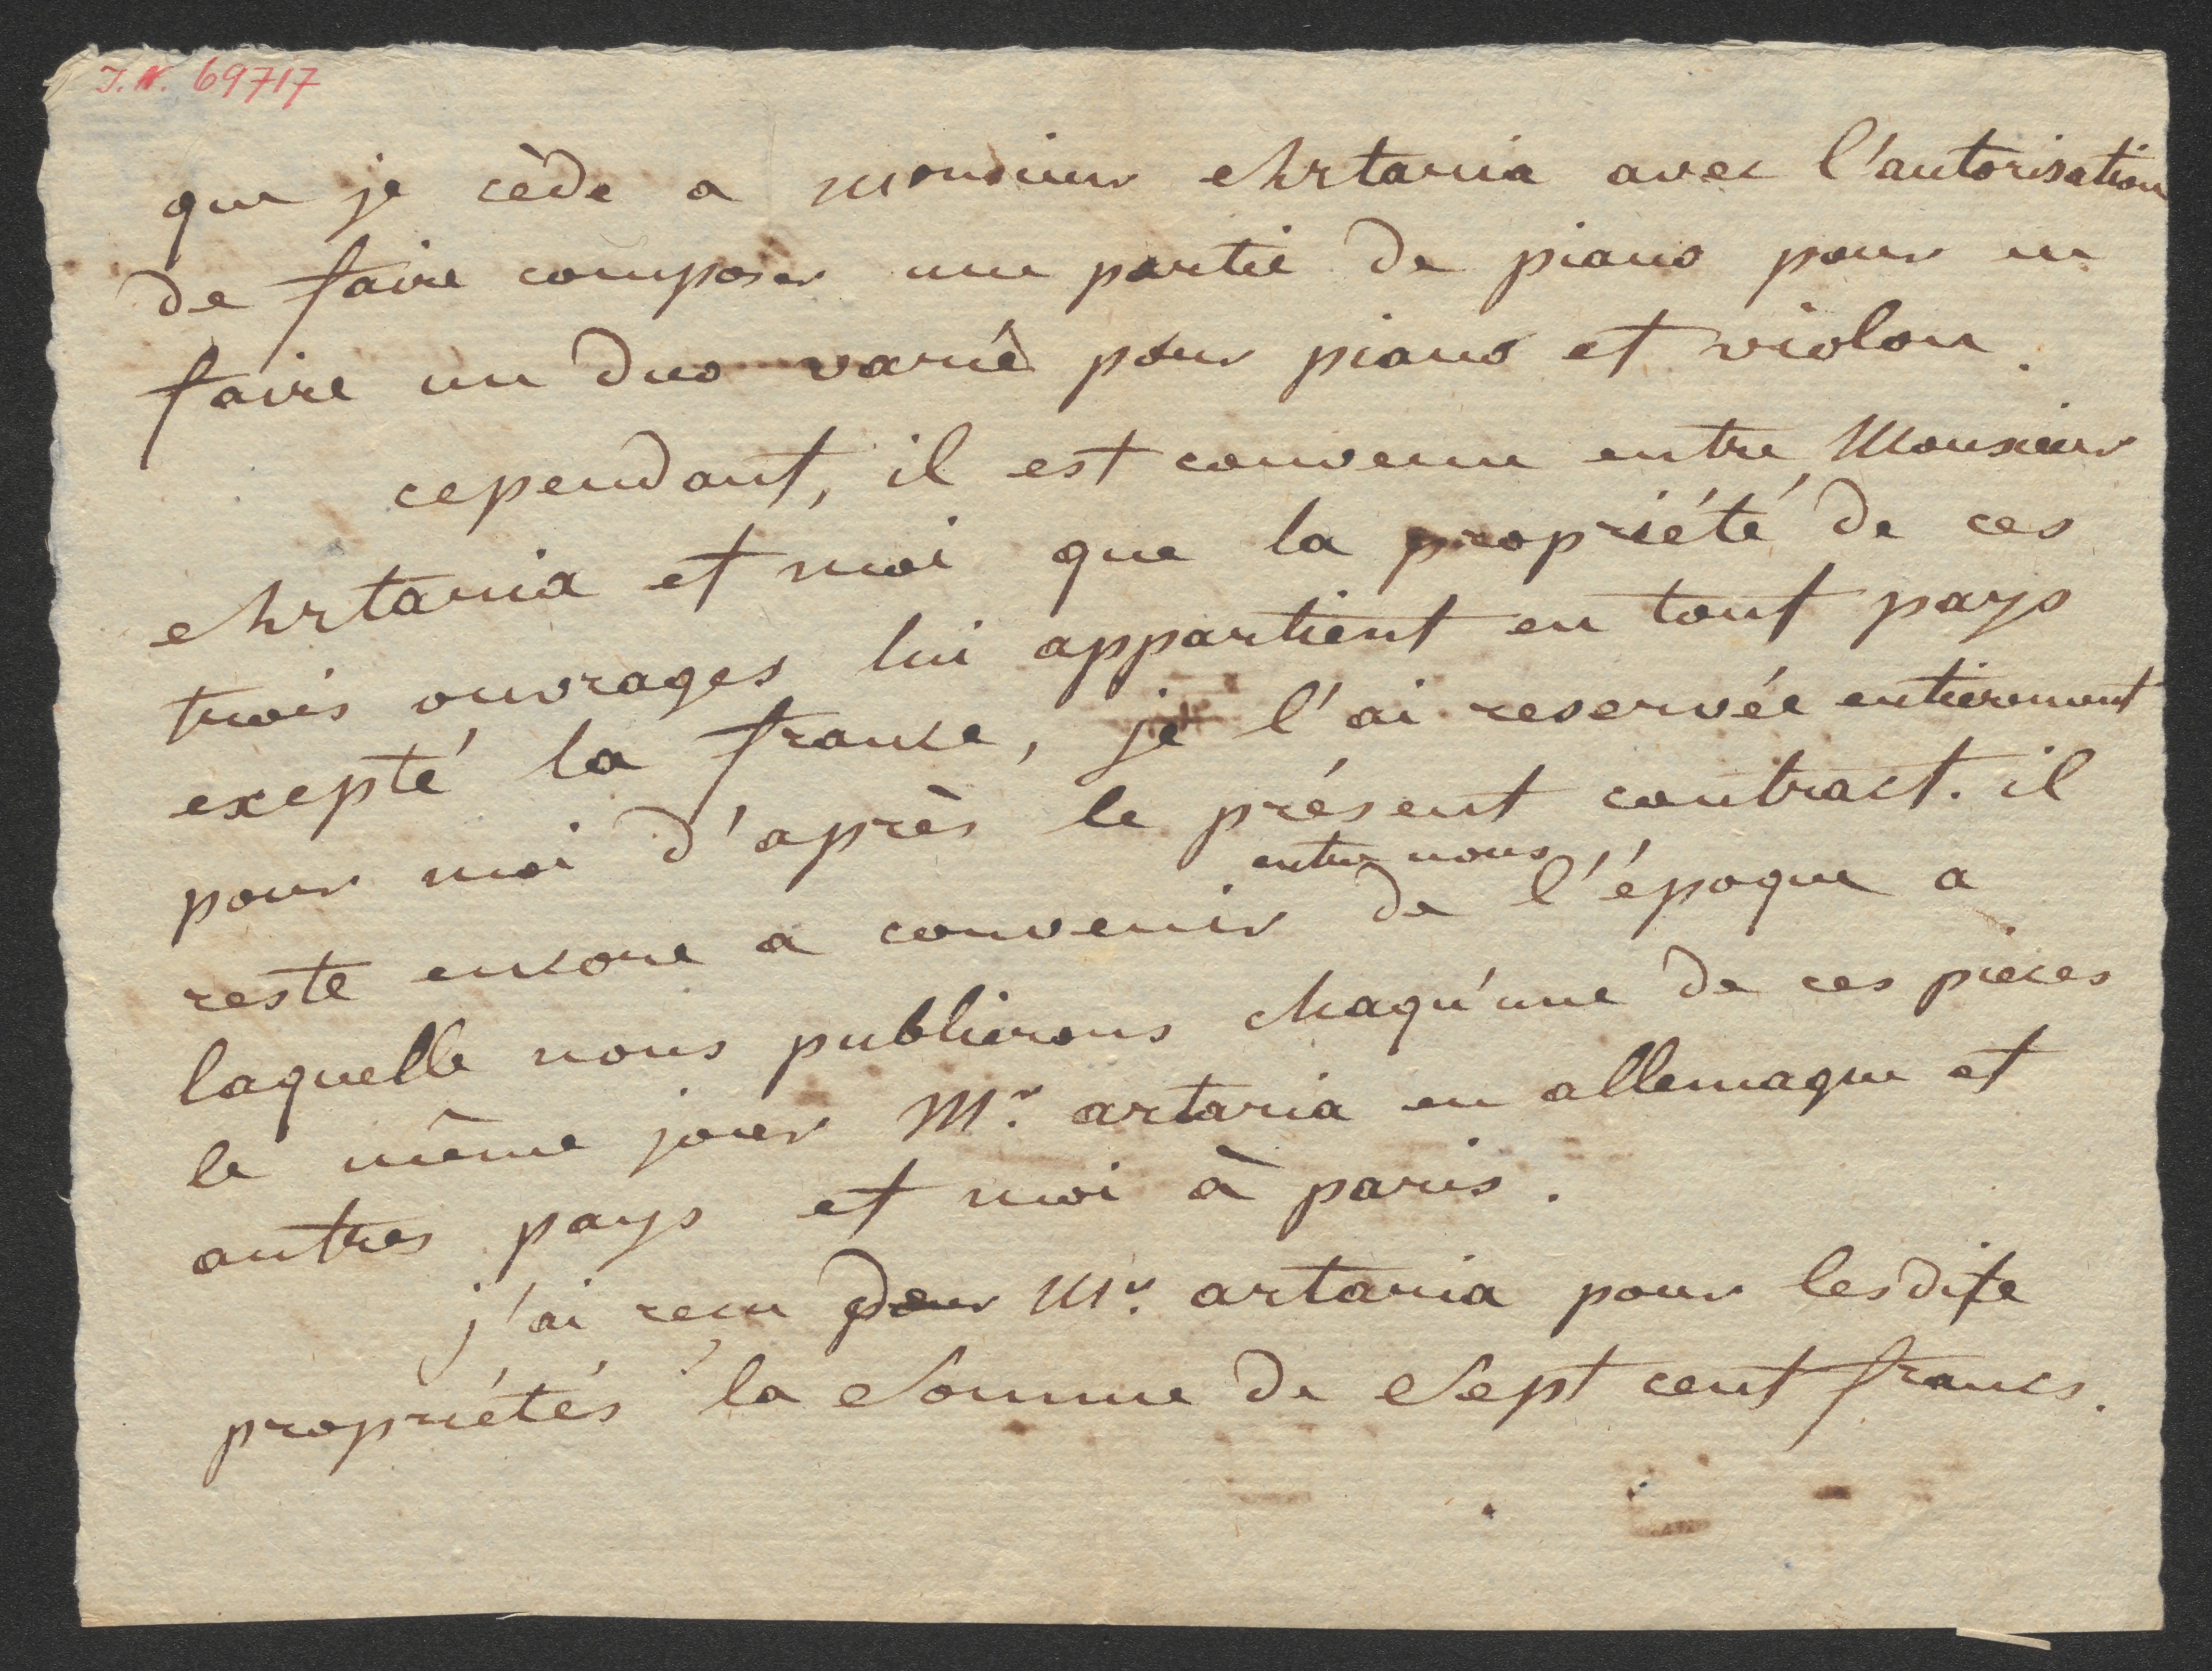 J.N. 69717
que je cède a monsieur Artaria avec l'autorisation
de faire composer une partie de piano pour en
faire un duo varié pour piano et violon.
cependant, il est convenu entre Monsieur
Artaria et moi que la propriété de ces
trois ouvrages lui appartient en tout pays
exepté la france, je l'ai reservée entierement
pour moi d'après le présent contract. il
entre nous,
reste encore a convenir de l'époque a
laquelle nous publierons chaqu'une de ces pieces
le même jour Mr. artaria en allemagne et
autres pays et moi à paris.
j'ai reçu de Mr. artaria pour lesdite
propriétés la Somme de Sept cent francs.